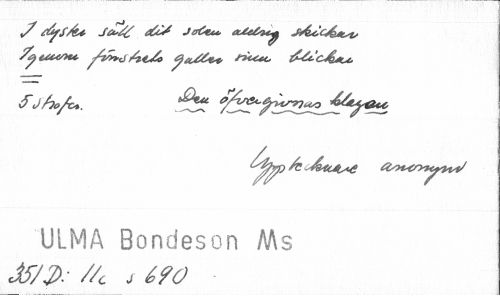 I dyster säll dit solen aldrig skickar
Igenom fönstrets galler sina blickar
5 strofer. Den öfvergivnas klagan
Upptecknare anonym
ULMA Bondeson Ms
351 D: 11c s 690